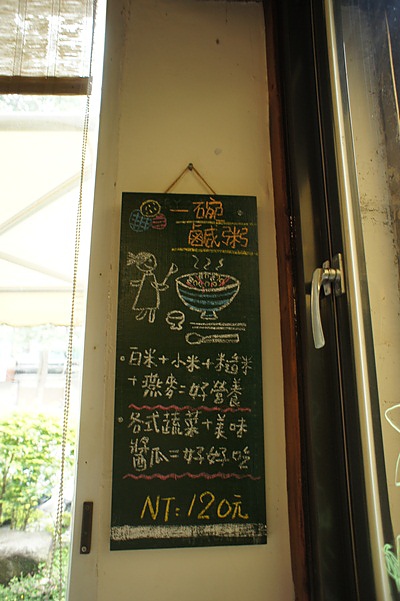 一碗
鹹粥
白米+小米+糙米
+燕麥=好營養
各式蔬菜+美味
醬瓜=好好吃
NT:120元